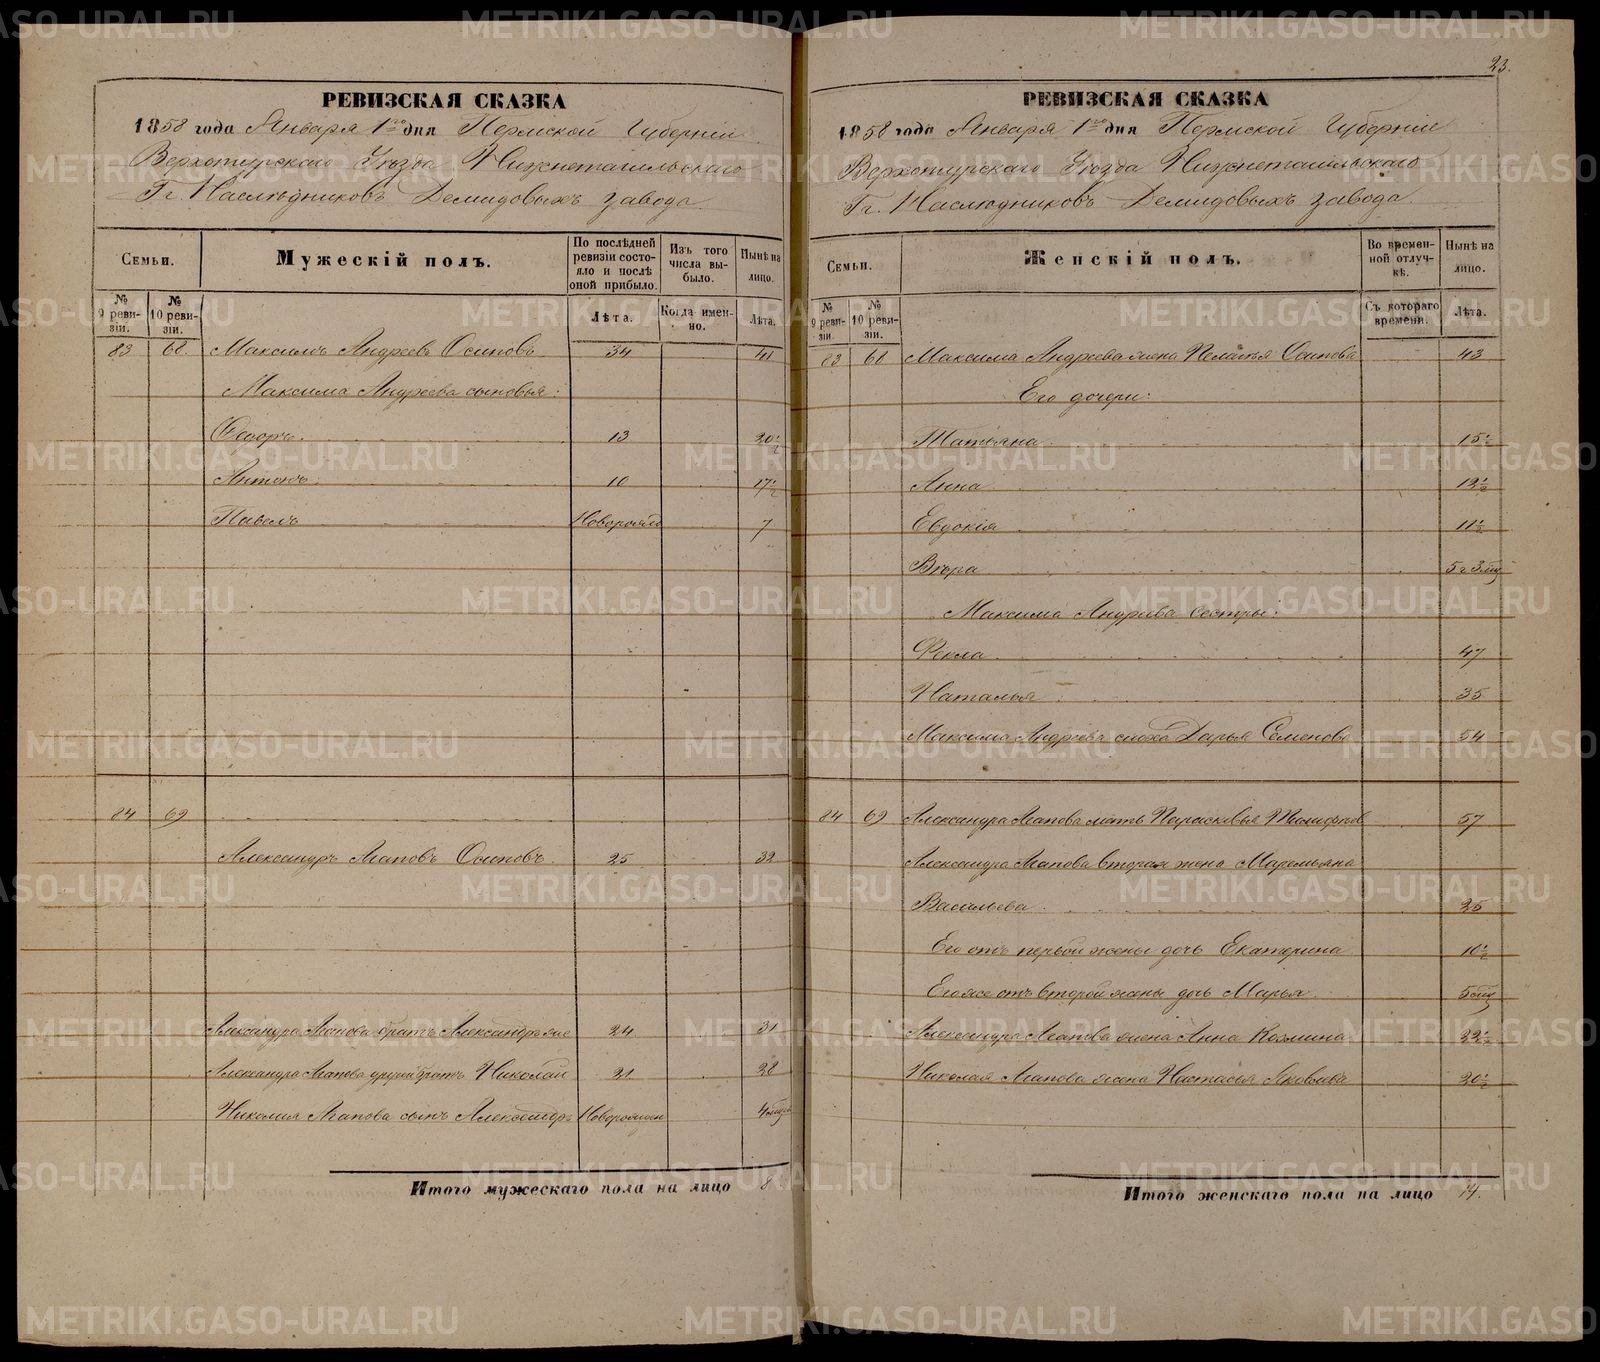 РЕВИЗСКАЯ СКАЗКА
1858 года Января 1го дня Пермской Губерніи
Верхотурскаго Уѣзда Нижнетагильскаго
Гг. Наслѣдниковъ Демидовыхъ завода.
Семьи.
Мужескій полъ.
По послѣдней ревизіи состояло и послѣ оной прибыло.
Изъ того числа выбыло.
Нынѣ на лицо.
№ 9 ревизіи.
№ 10 ревизіи.
Лѣта.
Когда именно.
Лѣта.
83 68. Максимъ Андреевъ Осиповъ 34 41
Максима Андреева сыновья:
Ѳедоръ. 13 20½
Антонъ. 10 17½
Павелъ 7
84 69
Александръ Агаповъ Осиповъ. 25 32
Александра Агапова братъ Александръ же 24 31
Александра Агапова другой братъ Николай 21 28
Николая Агапова сынъ Александръ Новорожден 4
Итого мужескаго пола на лицо 8
23.
РЕВИЗСКАЯ СКАЗКА
1858 года Января 1го дня Пермской Губерніи
Верхотурскаго Уѣзда Нижнетагильскаго
Гг. Наслѣдниковъ Демидовыхъ завода.
Семьи.
Женскій полъ.
Во временной отлучкѣ.
Нынѣ на лицо.
№ 9 ревизіи.
№ 10 ревизіи.
Съ котораго времени.
Лѣта.
83 68 Максима Андреева жена Пелагья Осипова 43
Его дочери:
Татьяна 15½
Анна 12½
Евдокія 11½
Вѣра 5 г 3 мц
Максима Андреева сестры:
Фекла 47
Наталья 35
Максима Андреева сноха Дарья Семенова 54
84 69 Александра Агапова мать Парасковья 57
Александра Агапова вторая жена Маремьяна
Васильева 25
Его отъ первой жены дочь Екатерина 10½
Его же отъ второй жены дочь Марья 5 мц
Александра Агапова жена Анна Козмина 22½
Николая Агапова жена Настасья Яковлева 20½
Итого женскаго пола на лицо 14.
METRIKI.GASO-URAL.RU